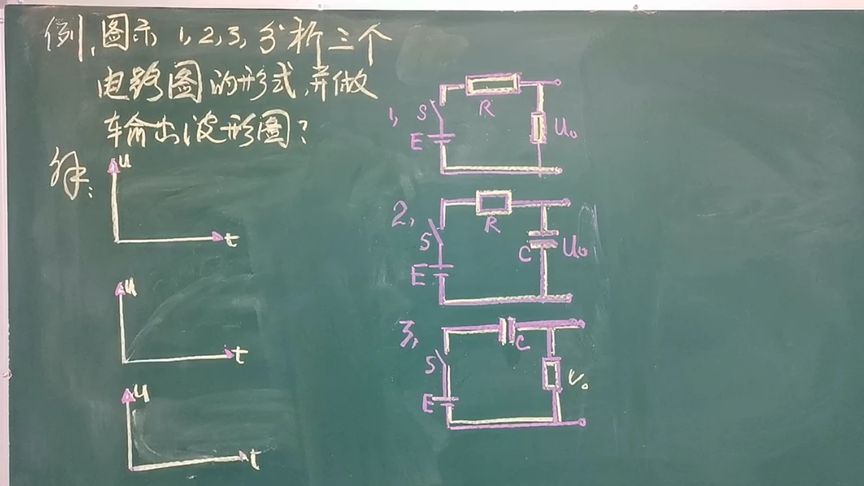 例,图示 1,2,3,分析三个
电路图的形式,并做
车输出波形图?
解:
u
t
u
t
u
t
1,
S
R
E
U₀
2,
S
R
E
C
U₀
3,
S
C
E
V₀